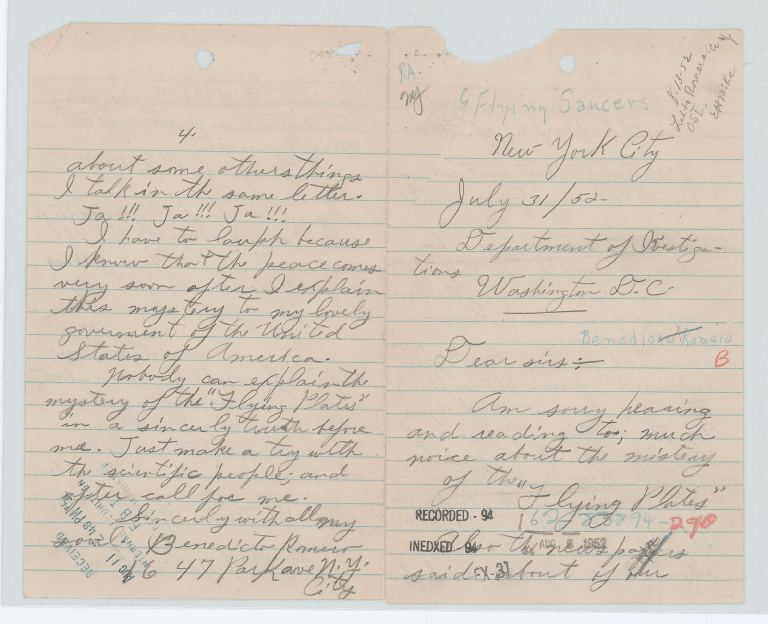 4.
about some others things
I talk in the same letter.
Ja!!! Ja!!! Ja!!!
I have to laugh because
I know that the peace comes
very soon after I explain
this mystery to my lovely
goverment of the United
States of America.
Nobody can explain the
mystery of the "Flying Plates"
in a sincerly truth before
me. Just make a try with
the scientific people; and
after call for me.
Sincerly with all my
soul Benedicto Romero
1647 Park ave N.Y.
City
RECEIVED
AUG 11
P.A.
my
Flying Saucers
8-13-52
New York City
July 31/52
Department of Ivestiga-
tions
Washington D.C.
Benedicto Romero
B
Dear sirs:
Am sorry hearing
and reading to; much
noice about the mistery
of the "Flying Plates"
RECORDED - 94
162-83894-290
Also the news papers
INDEXED - 94
AUG 1952
said about of our
EX-37